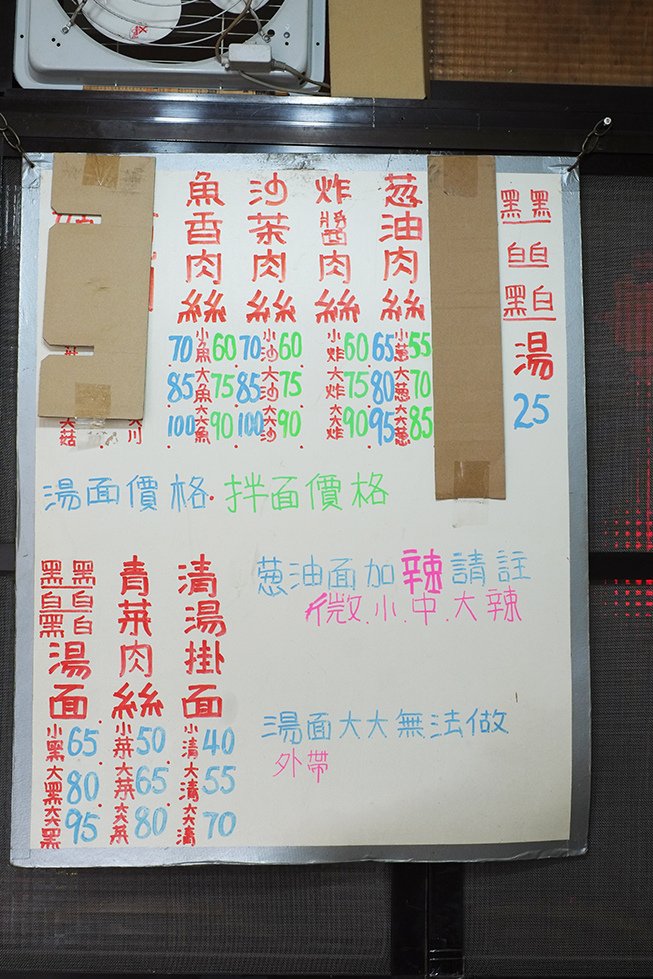 黑黑
白白
黑白
湯
25
葱油肉絲
65 小葱 55
80 大葱 70
95 大大葱 85
炸醬肉絲
小炸 60
大炸 75
大大炸 90
沙茶肉絲
70 小沙 60
85 大沙 75
100 大大沙 90
魚香肉絲
70 小魚 60
85 大魚 75
100 大大魚 90
大川
大菇
湯面價格.拌面價格
葱油面加辣請註
微.小.中.大辣
湯面大大無法做
外帶
清湯掛面
小清 40
大清 55
大大清 70
青菜肉絲
小菜 50
大菜 65
大大菜 80
黑黑
白白
黑白
湯面
小黑 65
大黑 80
大大黑 95